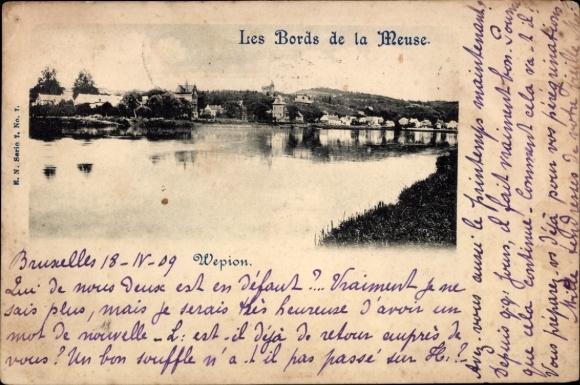 Les Bords de la Meuse.
E. N. Serie 7. No. 7.
Wépion.
Bruxelles 18-IV-09
Qui de nous deux est en défaut?... Vraiment je ne
sais plus, mais je serais très heureuse d'avoir un
mot de nouvelle - L: est-il déjà de retour auprès de
vous? Un bon souffle n'a-t-il pas passé sur H:?
Avez vous aussi le printemps maintenant,
Depuis qq. jours, il fait vraiment bon. Pourvu
que cela continue. Comment cela va-t-il
Vous préparez vos déjà pour vos pérégrinations
Mille tendresses de votre